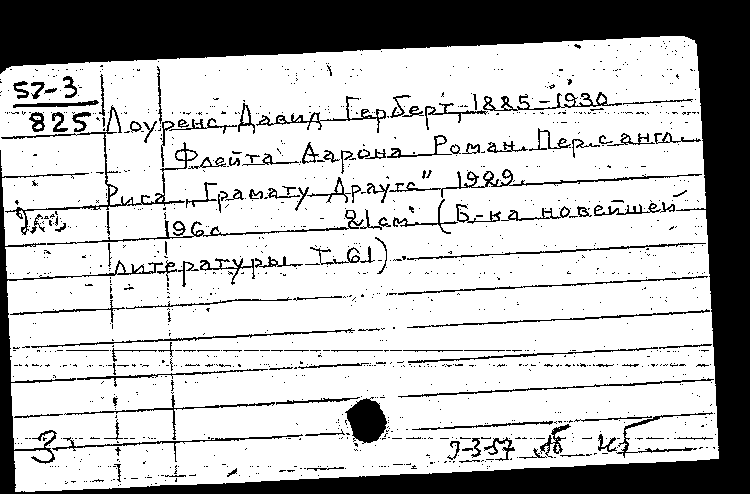 57-3
825
Лоуренс, Давид Герберт, 1885-1930
Флейта Аарона. Роман. Пер. с англ.
Рига „Грамату Драугс", 1929.
196 с 21 см. (Б-ка новейшей
литературы Т. 61).
3
9-3-57